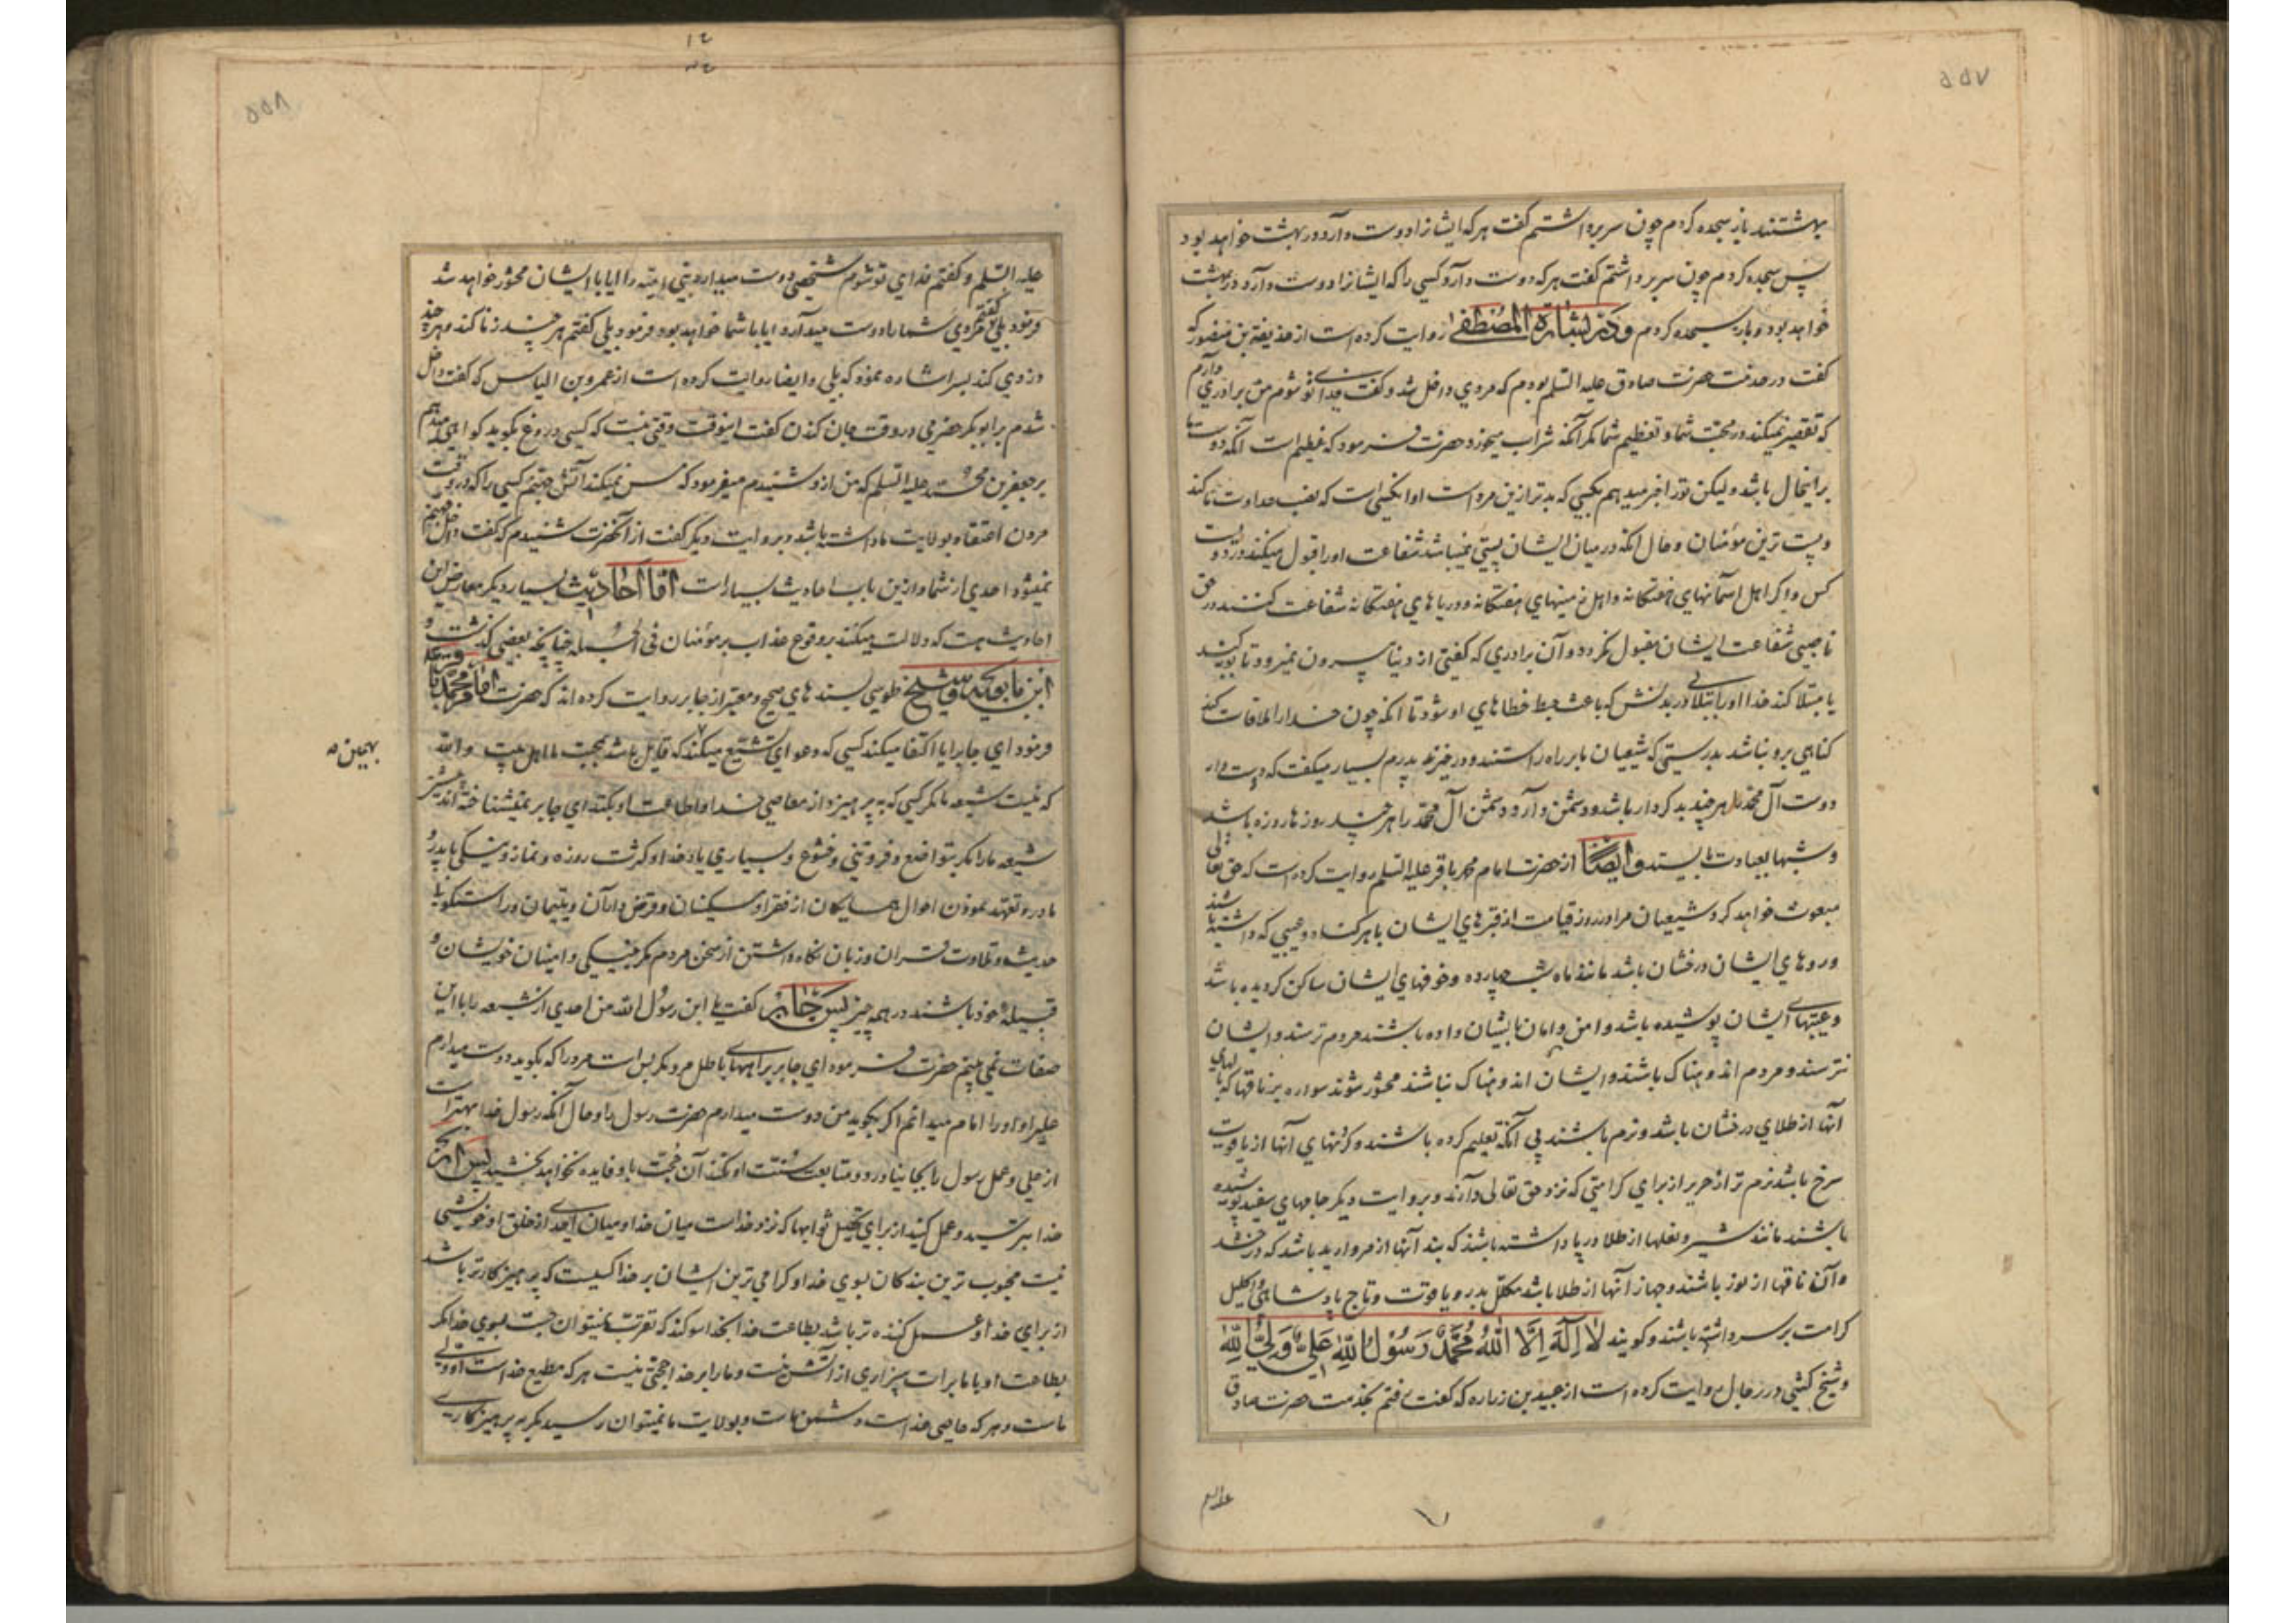 ۵۵۷
بهشتند باز سجده کردم چون سر برداشتم گفت هر که ایشانرا دوست دارد در بهشت خواهد بود
پس سجده کردم چون سر برداشتم گفت هر که دوست دارد کسی را که ایشانرا دوست دارد در بهشت
خواهد بود و باز سجده کردم و در بشارة المصطفی روایت کرده است از حذیفة بن منصور که
گفت در خدمت حضرت صادق علیه السلم بودم که مردی داخل شد و گفت فدای تو شوم من برادری دارم
که تقصیر نمیکند در محبت شما و تعظیم شما مکر آنکه شراب میخورد حضرت فرمود که عظیم است آنکه دوست ما
براینحال باشد ولیکن تو را خبر میدهم بکسی که بدتر ازین مرد است او آنکسی است که نصب عداوت ما کند
و پست ترین مؤمنان و حال آنکه در میان ایشان پستی نمیباشد شفاعت او را قبول میکنند در دویست
کس و اکر اهل آسمانهای هفتکانه و اهل زمینهای هفتکانه و دریاهای هفتکانه شفاعت کنند در حق
ناصبی شفاعت ایشان مقبول نکردد و آن برادری که گفتی از دنیا بیرون نمیرود تا توبه کند
یا مبتلا کند خدا او را ببتلائی در بدنش که باعث حبط خطاهای او شود تا آنکه چون خدا را ملاقات کند
کناهی برو نباشد بدرستی که شیعیان ما بر راه راستند و در خیرند پدرم بسیار میگفت که دوست دار
دوست آل محمد را هر چند بد کردار باشد و دشمن دار دشمن آل محمد را هر چند روزها روزه باشد
و شبها بعبادت بایستد و ایضاً از حضرت امام محمد باقر علیه السلم روایت کرده است که حق تعالی
مبعوث خواهد کرد شیعیان مرا در روز قیامت از قبرهای ایشان با هر کناه و عیبی که داشته باشند
و روهای ایشان درخشان باشد مانند ماه شب چهارده و خوفهای ایشان ساکن کردیده باشد
و عیبهای ایشان پوشیده باشد و امن و امان بایشان داده باشند مردم ترسند و ایشان
نترسند و مردم اندوهناک باشند و ایشان اندوهناک نباشند محشور شوند سواره بر ناقها که بالهای
آنها از طلای درخشان باشد و نرم باشند بی آنکه تعلیم کرده باشند و کردنهای آنها از یاقوت
سرخ باشد نرم تر از حریر از برای کرامتی که نزد حق تعالی دارند و بروایت دیکر جامهای سفید پوشیده
باشند مانند شیر و نعلها از طلا در پا داشته باشند که بند آنها از مروارید باشد که درخشد
و آن ناقها از نور باشند و جهاز آنها از طلا باشد مکلل بدر و یاقوت و تاج پادشاهی و اکلیل
کرامت بر سر داشته باشند و کویند لا اله الا الله محمد رسول الله علی ولی الله
و شیخ کشی در رجال روایت کرده است از عبید بن زراره که گفت رفتم بخدمت حضرت صادق
علیه السلم
۵۵۸
علیه السلم و گفتم فدای تو شوم شخصی دوست میدارد بنی امیه را آیا با ایشان محشور خواهد شد
فرمود بلی گفتم مردی شما را دوست میدارد آیا با شما خواهد بود فرمود بلی گفتم هر چند زنا کند و هر چند
دزدی کند بسر اشاره نمود که بلی و ایضا روایت کرده است از عمرو بن الیاس که گفت داخل
شدم بر ابوبکر حضرمی در وقت جان کندن گفت اینوقت وقتی نیست که کسی دروغ بکوید کواهی میدهم
بر جعفر بن محمد علیه السلم که من از و شنیدم میفرمود که مس نمیکند آتش جهنم کسی را که در وقت
مردن اعتقاد بولایت ما داشته باشد و بروایت دیکر گفت از آنحضرت شنیدم که گفت داخل جهنم
نمیشود احدی از شما و ازین باب احادیث بسیار است اما احادیث بسیار دیکر معارض این
احادیث هست که دلالت میکنند بر وقوع عذاب بر مؤمنان فی الجمله چنانچه بعضی کذشت و
ابن بابویه و شیخ طوسی بسندهای صحیح و معتبر از جابر روایت کرده اند که حضرت امام محمد باقر
فرمود ای جابر آیا اکتفا میکند کسی که دعوای تشیع میکند که قایل باشد بمحبت ما اهل بیت والله
بهمین
که نیست شیعه ما مکر کسی که بپرهیزد از معاصی خدا و اطاعت او بکند ای جابر نمیشناخته اند پیشتر
شیعه ما را مکر بتواضع و فروتنی و خشوع و بسیاری یاد خدا و کثرت روزه و نماز و نیکی با پدر و
مادر و تعهد نمودن احوال همسایکان از فقرا و مسکینان و قرض داران و یتیمان و راستکویی
حدیث و تلاوت قرآن و زبان نکاه داشتن از سخن مردم مکر بنیکی و امینان خویشان و
قبیله خود باشند در همه چیز پس جابر گفت یا ابن رسول الله من احدی از شیعه را با این
صفات نمی بینم حضرت فرمود ای جابر براههای باطل مرو مکر بس است مرد را که بکوید دوست میدارم
علی را و او را امام میدانم اکر بکوید من دوست میدارم حضرت رسول را و حال آنکه رسول خدا بهتر است
از علی و عمل رسول را بجا نیاورد و متابعت سنت او نکند آن محبت باو فایده نخواهد بخشید پس از
خدا بترسید و عمل کنید از برای تحصیل ثوابها که نزد خداست میان خدا و میان احدی از خلق او خویشی
نیست محبوب ترین بندکان بسوی خدا و کرامی ترین ایشان بر خدا کسیست که پرهیزکارتر باشد
از برای خدا و عمل کننده تر باشد بطاعت خدا بخدا سوکند که تقرب نمیتوان جست بسوی خدا مکر
بطاعت او با ما برات بیزاری از آتش نیست و ما را بر خدا حجتی نیست هر که مطیع خداست او ولی
ماست و هر که عاصی خداست دشمن ماست و بولایت ما نمیتوان رسید مکر به پرهیزکاری